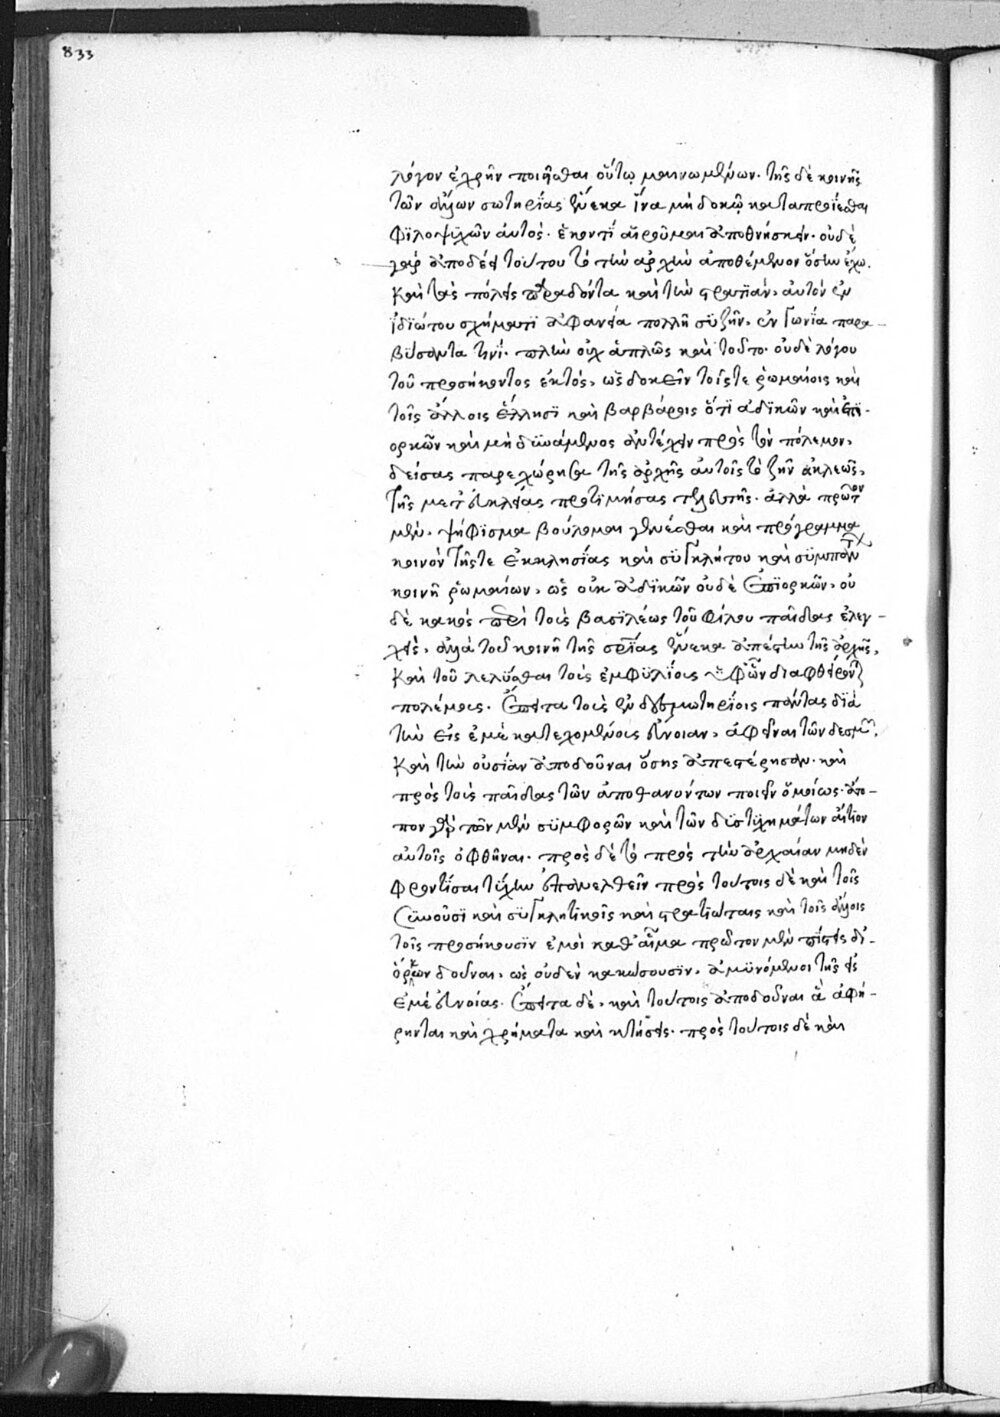 833
λόγον ἐχρῆν ποιῆσθαι οὕτω μαινομένων. τῆς δὲ κοινῆς
τῶν ὅλων σωτηρίας ἕνεκα ἵνα μὴ δοκῶ καταπροΐεσθαι
φϊλοψϋχῶν αὐτός. ἑκοντὶ αἱροῦμαι ἀποθνήσκειν. οὐδὲ
γὰρ ἀποδέει τούτου τὸ τὴν ἀρχὴν ἀποθέμενον ὅσην ἔχω.
καὶ τὰς πόλεις παραδόντα καὶ τὴν στρατϊὰν, αὐτὸν ἐν
ϊδϊώτου σχήματϊ ἀφανεία πολλῆ σϋζῆν, ἐν γωνία παρα-
βϋσοντα τινί. πλὴν οὐχ ἁπλῶς καὶ τοῦτο. οὐδὲ λόγου
τοῦ προσήκοντος ἐκτός, ὡς δοκεῖν τοῖς τε ῥωμαίοις καὶ
τοῖς ἄλλοις ἕλλησϊ καὶ βαρβάροις ὅτϊ ἀδϊκῶν καὶ ἐπϊ-
ορκῶν καὶ μὴ δϋνάμενος ἀντέχειν πρὸς τὸν πόλεμον,
δείσας παρεχώρησα τῆς ἀρχῆς αὐτοῖς τὸ ζῆν ἀκλεῶς,
τῆς μετ εὐκλείας προτϊμήσας τελευτῆς. ἀλλὰ πρῶτον
μὲν. ψήφϊσμα βούλομαι γενέσθαι καὶ πρόγραμμα
κοινὸν τῆς τε ἐκκλησίας καὶ σϋγκλήτου καὶ σϋμπάντων
κοινῆ ῥωμαίων, ὡς οὐκ ἀδϊκῶν οὐδὲ ἐπϊορκῶν, οὐ
δὲ κακὸς περὶ τοὺς βασϊλέως τοῦ φίλου παῖδας ἐλεγ-
χθεὶς, ἀλλὰ τοῦ κοινῆ τῆς σωτηρίας ἕνεκα ἀπέστην τῆς ἀρχῆς,
καὶ τοῦ λελῦσθαι τοὺς ἐμφϋλίους διαφθείροντας
πολέμους. ἔπειτα τοὺς ἐν δεσμωτηρίοις πάντας διὰ
τὴν εἰς ἐμὲ κατεχομένους εὔνοιαν, ἀφεῖναι τῶν δεσμῶν,
καὶ τὴν οὐσίαν ἀποδοῦναι ὅσης ἀπεστέρησαν. καὶ
πρὸς τοὺς παῖδας τῶν ἀποθανόντων ποιεῖν ὁμοίως. ἄτο-
πον γὰρ τῶν μὲν σϋμφορῶν καὶ τῶν δϋστϋχημάτων αἴτιον
αὐτοῖς ὀφθῆναι. πρὸς δὲ τὸ πρὸς τὴν ἀρχαίαν μηδὲν
φροντίσαι τύχην ἐπανελθεῖν πρὸς τούτοις δὲ καὶ τοῖς
σϋνοῦσϊ καὶ σϋγκλητϊκοῖς καὶ στρατιώταις καὶ τοῖς ἄλλοις
τοῖς προσήκουσϊν ἐμοὶ καθ αἷμα πρῶτον μὲν πίστεις δι-
όρκων δοῦναι, ὡς οὐδὲν κακώσουσϊν, ἀμϋνόμενοι τῆς εἰς
ἐμὲ εὐνοίας. ἔπειτα δὲ, καὶ τούτοις ἀποδοῦναι ἃ ἀφή-
ρηνται καὶ χρήματα καὶ κτήσεις. πρὸς τούτοις δὲ καὶ